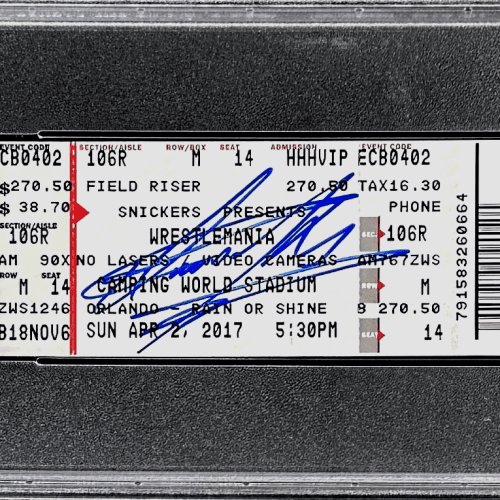 EVENT CODE SECTION/AISLE ROW/BOX SEAT ADMISSION EVENT CODE
CB0402 106R M 14 HHHVIP ECB0402
$270.50 FIELD RISER 270.50 TAX16.30
$ 38.70 SNICKERS PRESENTS PHONE
SECTION/AISLE
106R WRESTLEMANIA SEC. 106R
AM 90X NO LASERS / VIDEO CAMERAS AM767ZWS
ROW SEAT
M 14 CAMPING WORLD STADIUM ROW M
ZWS1246 ORLANDO - RAIN OR SHINE $ 270.50
B18NOV6 SUN APR 2, 2017 5:30PM SEAT 14
791583260664